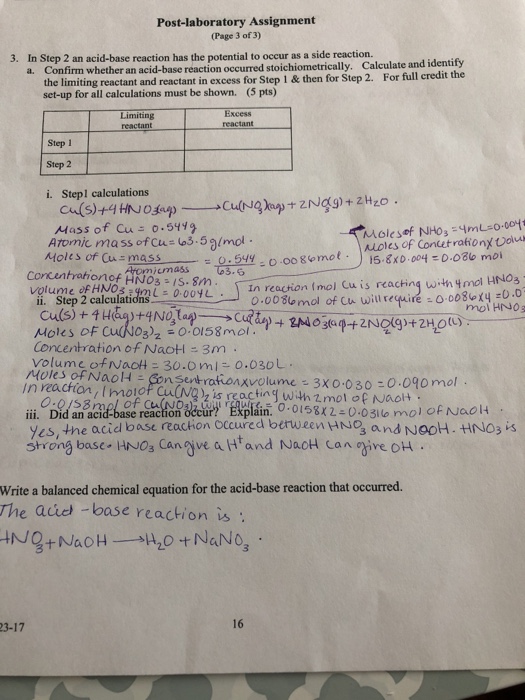 Post-laboratory Assignment
(Page 3 of 3)
3. In Step 2 an acid-base reaction has the potential to occur as a side reaction.
a. Confirm whether an acid-base reaction occurred stoichiometrically. Calculate and identify
the limiting reactant and reactant in excess for Step 1 & then for Step 2. For full credit the
set-up for all calculations must be shown. (5 pts)
Limiting reactant
Excess reactant
Step 1
Step 2
i. Step1 calculations
Cu(s)+4HNO3(aq) → Cu(NO3)2(aq) + 2NO2(g) + 2H2O.
Mass of Cu = 0.544g
Atomic mass of Cu = 63.5g/mol.
Moles of Cu = mass / Atomic mass = 0.544 / 63.5 = 0.0086mol.
Concentration of HNO3 = 15.8m.
Volume of HNO3 = 4mL = 0.004L
Moles of HNO3 = 4mL = 0.004
Moles of Concetration x Volu
15.8x0.004 = 0.086 mol
In reaction 1mol Cu is reacting with 4mol HNO3
0.0086mol of Cu will require = 0.0086x4 = 0.0
mol HNO3
ii. Step 2 calculations
Cu(s) + 4H(aq) + 4NO3(aq) →
+ 2NO2(g) + 2H2O(L).
Moles of Cu(NO3)2 = 0.0158mol.
Concentration of NaOH = 3m.
Volume of NaOH = 30.0ml = 0.030L.
Moles of NaOH = Consentration x volume = 3x0.030 = 0.090mol.
In reaction, 1mol of Cu(NO3)2 is reacting with 2mol of NaOH.
0.0158mol of Cu(NO3)2 will require = 0.0158x2 = 0.0316 mol of NaOH.
iii. Did an acid-base reaction occur? Explain.
Yes, the acid base reaction Occured between HNO3 and NaOH. HNO3 is
strong base. HNO3 Can give a H+ and NaOH can give OH.
Write a balanced chemical equation for the acid-base reaction that occurred.
The acid-base reaction is :
HNO3 + NaOH → H2O + NaNO3.
23-17
16